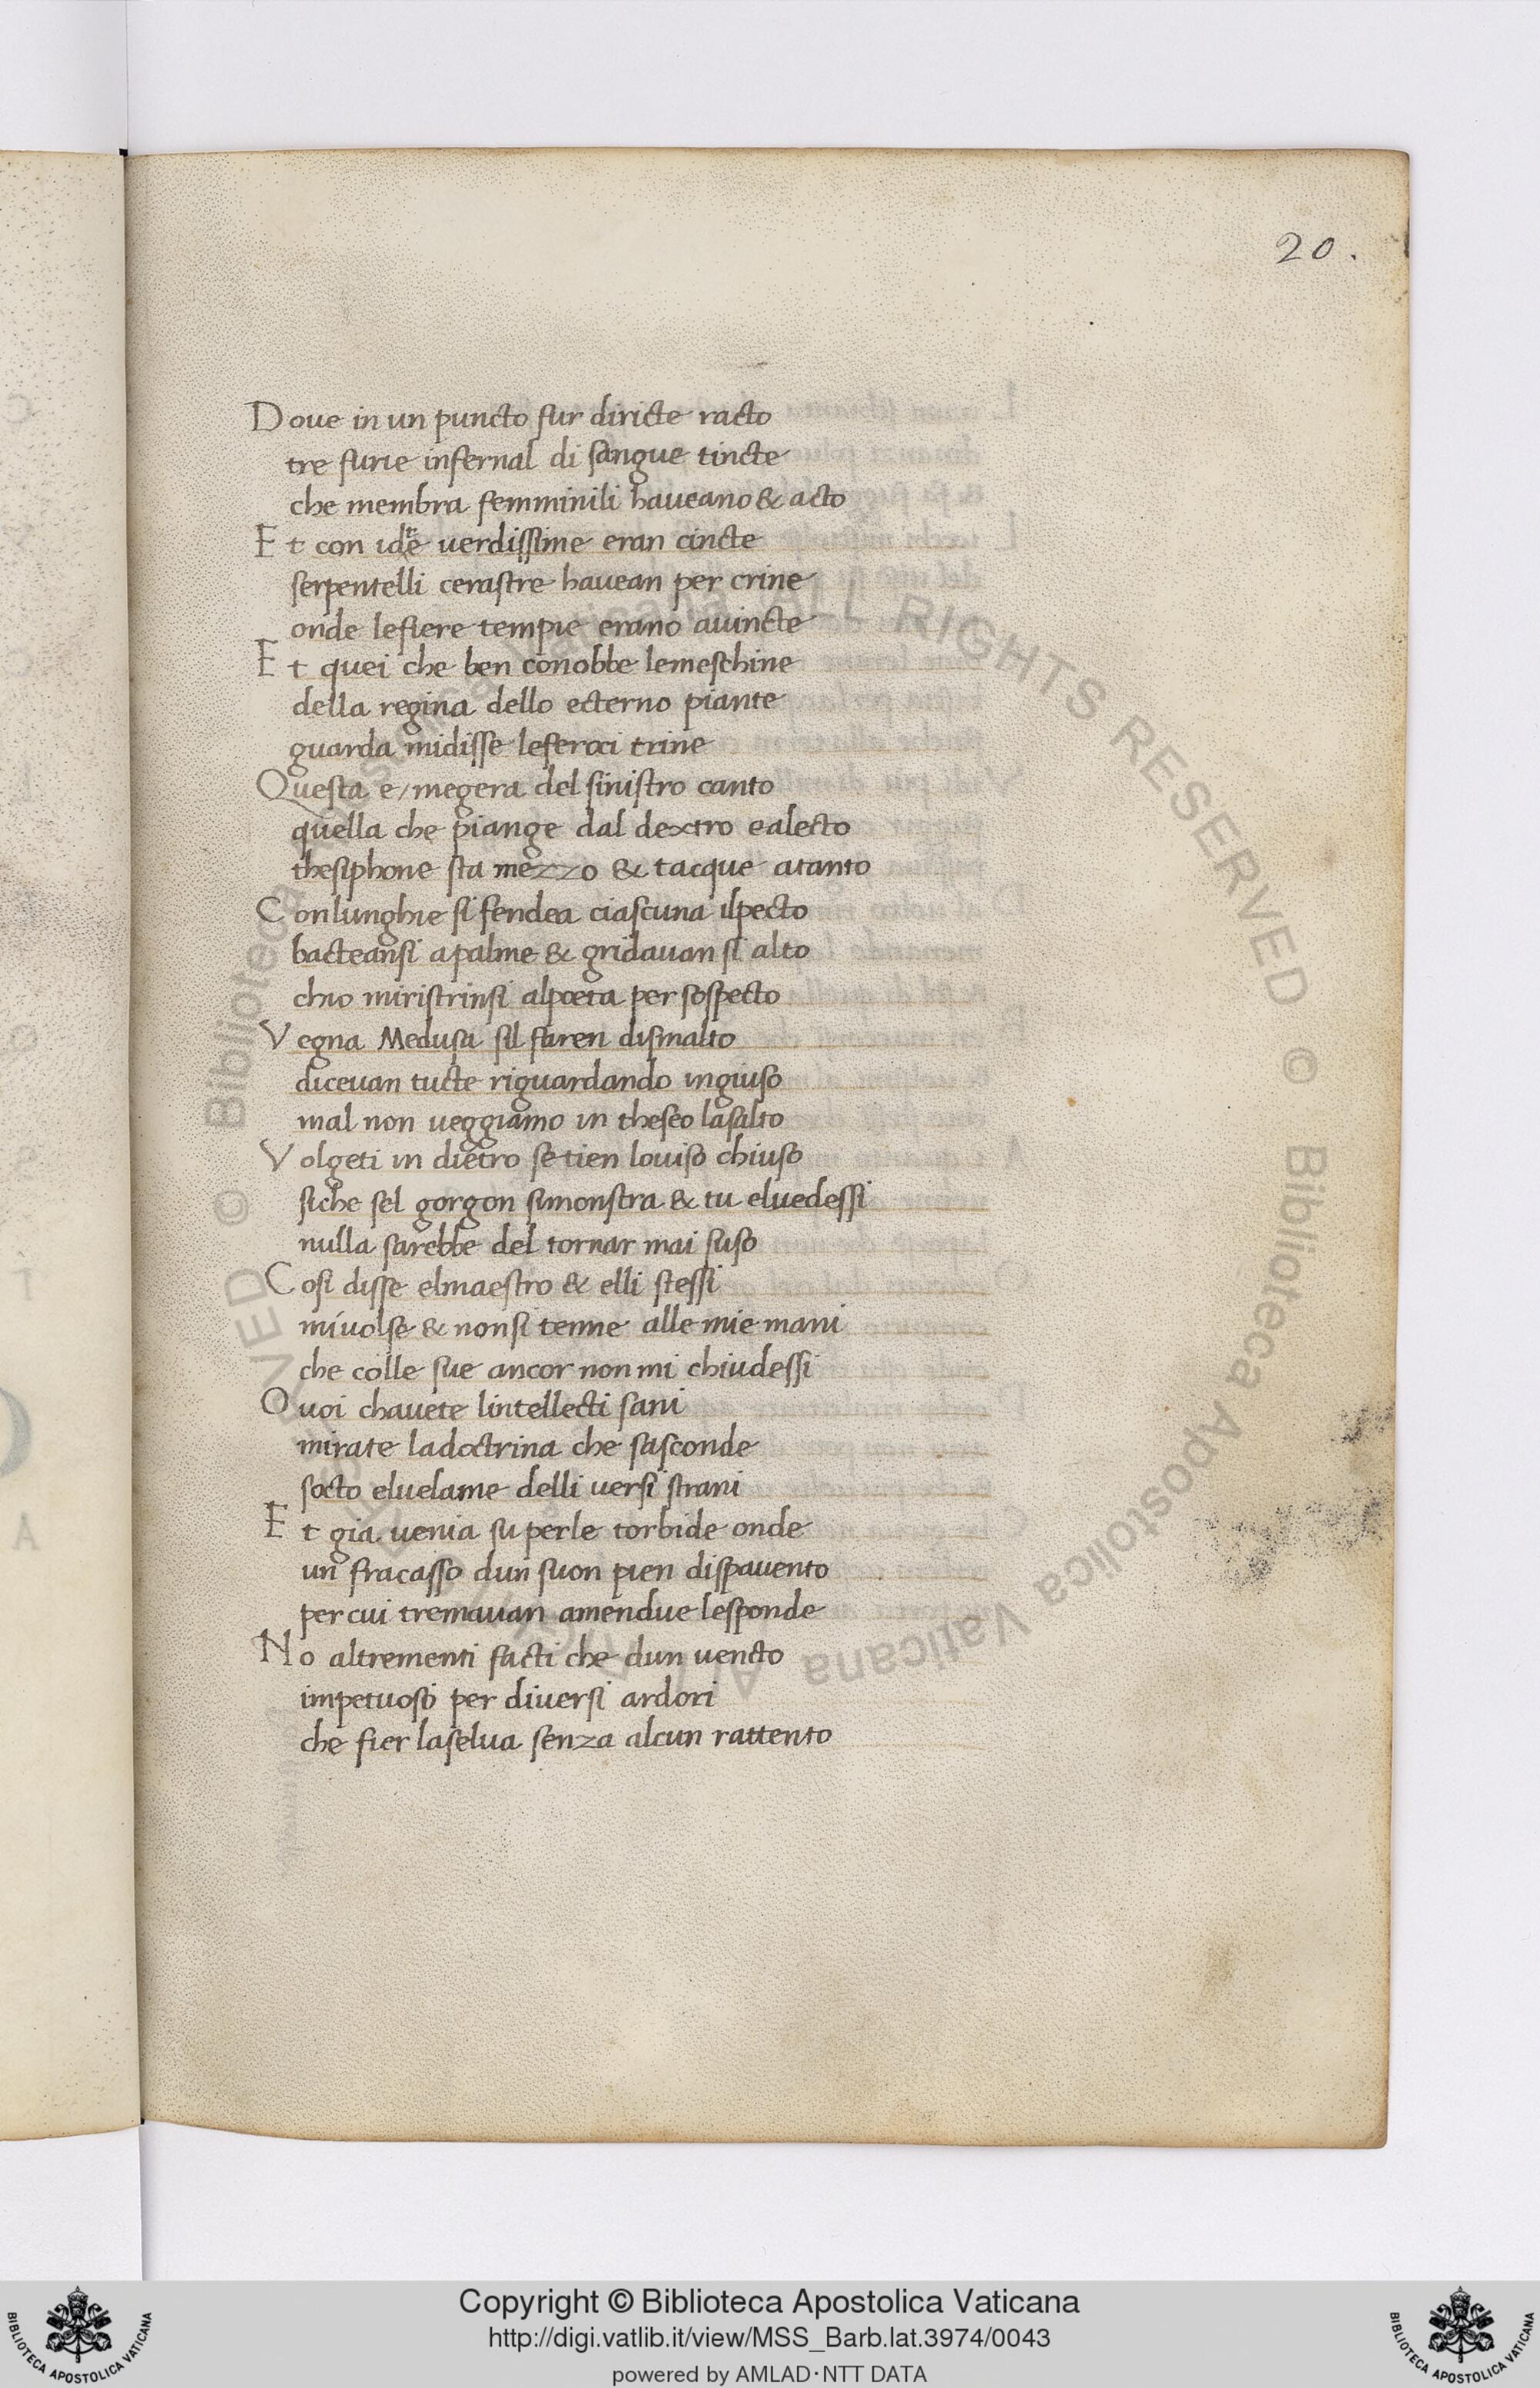 20.
Doue in un puncto fur diricte racto
tre furie infernal di sangue tincte
che membra femminili haveano & acto
Et con idre verdissime eran cincte
serpentelli cerastre havean per crine
onde lefiere tempie erano avincte
Et quei che ben conobbe lemeschine
della regina dello ecterno piante
guarda midisse leferoci trine
Questa e/megera del sinistro canto
quella che piange dal dextro ealecto
thesiphone sta mezzo & tacque atanto
Conlunghie si fendea ciascuna ilpecto
bacteansi apalme & gridavan si alto
chio miristrinsi alpoeta per sospecto
Vegna Medusa sil faren dismalto
dicevan tucte riguardando ingiuso
mal non veggiamo in theseo lasalto
Volgeti in dietro se tien loviso chiuso
siche sel gorgon simonstra & tu elvedessi
nulla sarebbe del tornar mai suso
Cosi disse elmaestro & elli stessi
mivolse & nonsi tenne alle mie mani
che colle sue ancor non mi chiudessi
O voi chavete lintellecti sani
mirate ladoctrina che sasconde
socto elvelame delli versi strani
Et gia venia su perle torbide onde
un fracasso dun suon pien dispavento
per cui tremavan amendue lesponde
No altrementi facti che dun vencto
impetuoso per diversi ardori
che fier laselva senza alcun rattento
© Biblioteca Apostolica Vaticana ALL RIGHTS RESERVED © Biblioteca Apostolica Vaticana ALL RIGHTS RESERVED
Copyright © Biblioteca Apostolica Vaticana
http://digi.vatlib.it/view/MSS_Barb.lat.3974/0043
powered by AMLAD·NTT DATA
BIBLIOTECA APOSTOLICA VATICANA
BIBLIOTECA APOSTOLICA VATICANA